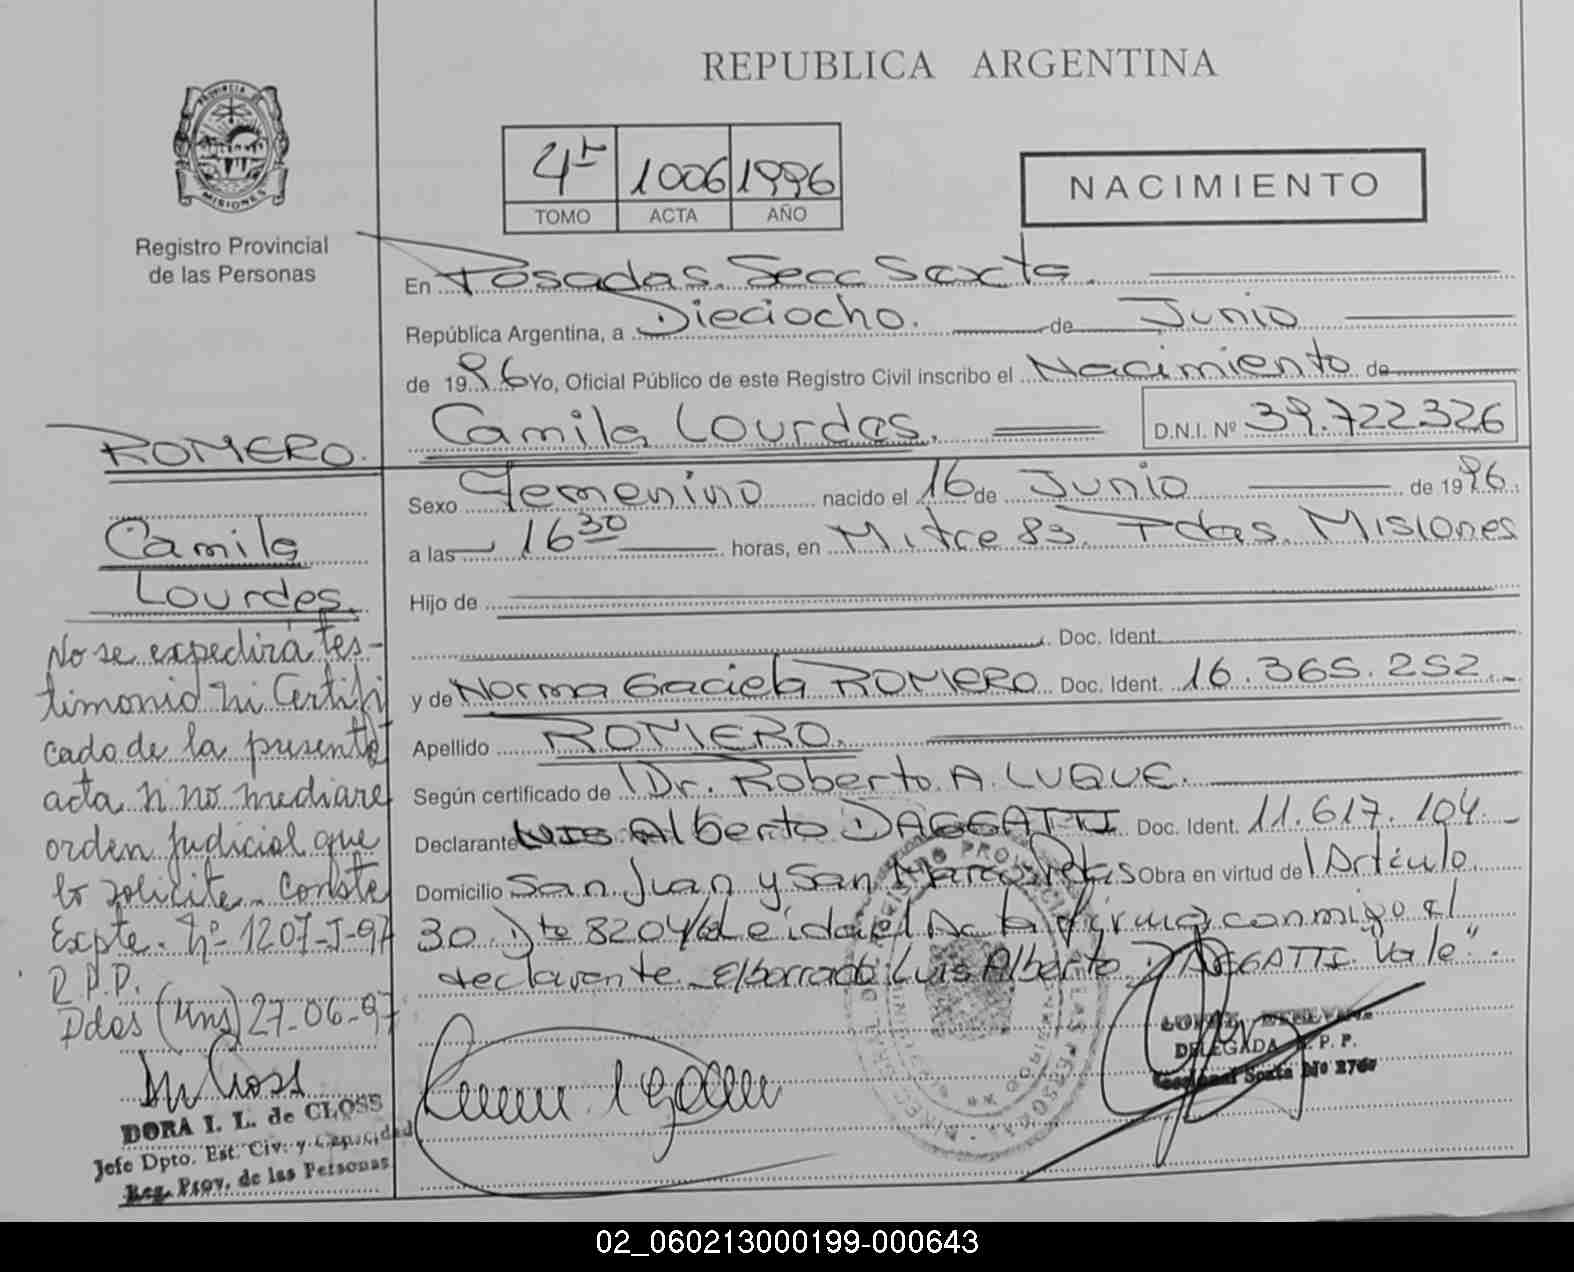 REPUBLICA ARGENTINA
PROVINCIA DE
MISIONES
Registro Provincial
de las Personas
4º 1006 1996
TOMO ACTA AÑO
NACIMIENTO
En Posadas. Secc Sexta.
República Argentina, a Dieciocho. de Junio
de 1996 Yo, Oficial Público de este Registro Civil inscribo el Nacimiento de
Camila Lourdes. D.N.I. Nº 39.722.326
Sexo Femenino nacido el 16 de Junio de 1996
a las 16 30 horas, en Mitre 83. Pdas. Misiones
Hijo de
Doc. Ident.
y de Norma Graciela ROMERO Doc. Ident. 16.365.252.
Apellido ROMERO.
Según certificado de Dr. Roberto A. LUQUE.
Declarante Luis Alberto DAGGATTI Doc. Ident. 11.617.104.
Domicilio San Juan y San Marcos Pdas Obra en virtud de Artículo
30 Dto 8204/ Leída el Acta firma conmigo el
declarante. El borrado: Luis Alberto DAGGATTI "Vale".
DELEGADA R. P. P.
Seccional Sexta Nº 2760
ROMERO.
Camila
Lourdes.
No se expedirá tes-
timonio ni Certifi
cado de la presente
acta si no mediare
orden judicial que
lo solicite. Conste
Expte. Nº 1207-J-97
R.P.P.
Pdas (Mns) 27-06-97
DORA I. L. de CLOSS
Jefe Dpto. Est. Civ. y Capacidad
Reg. Prov. de las Personas
02_060213000199-000643